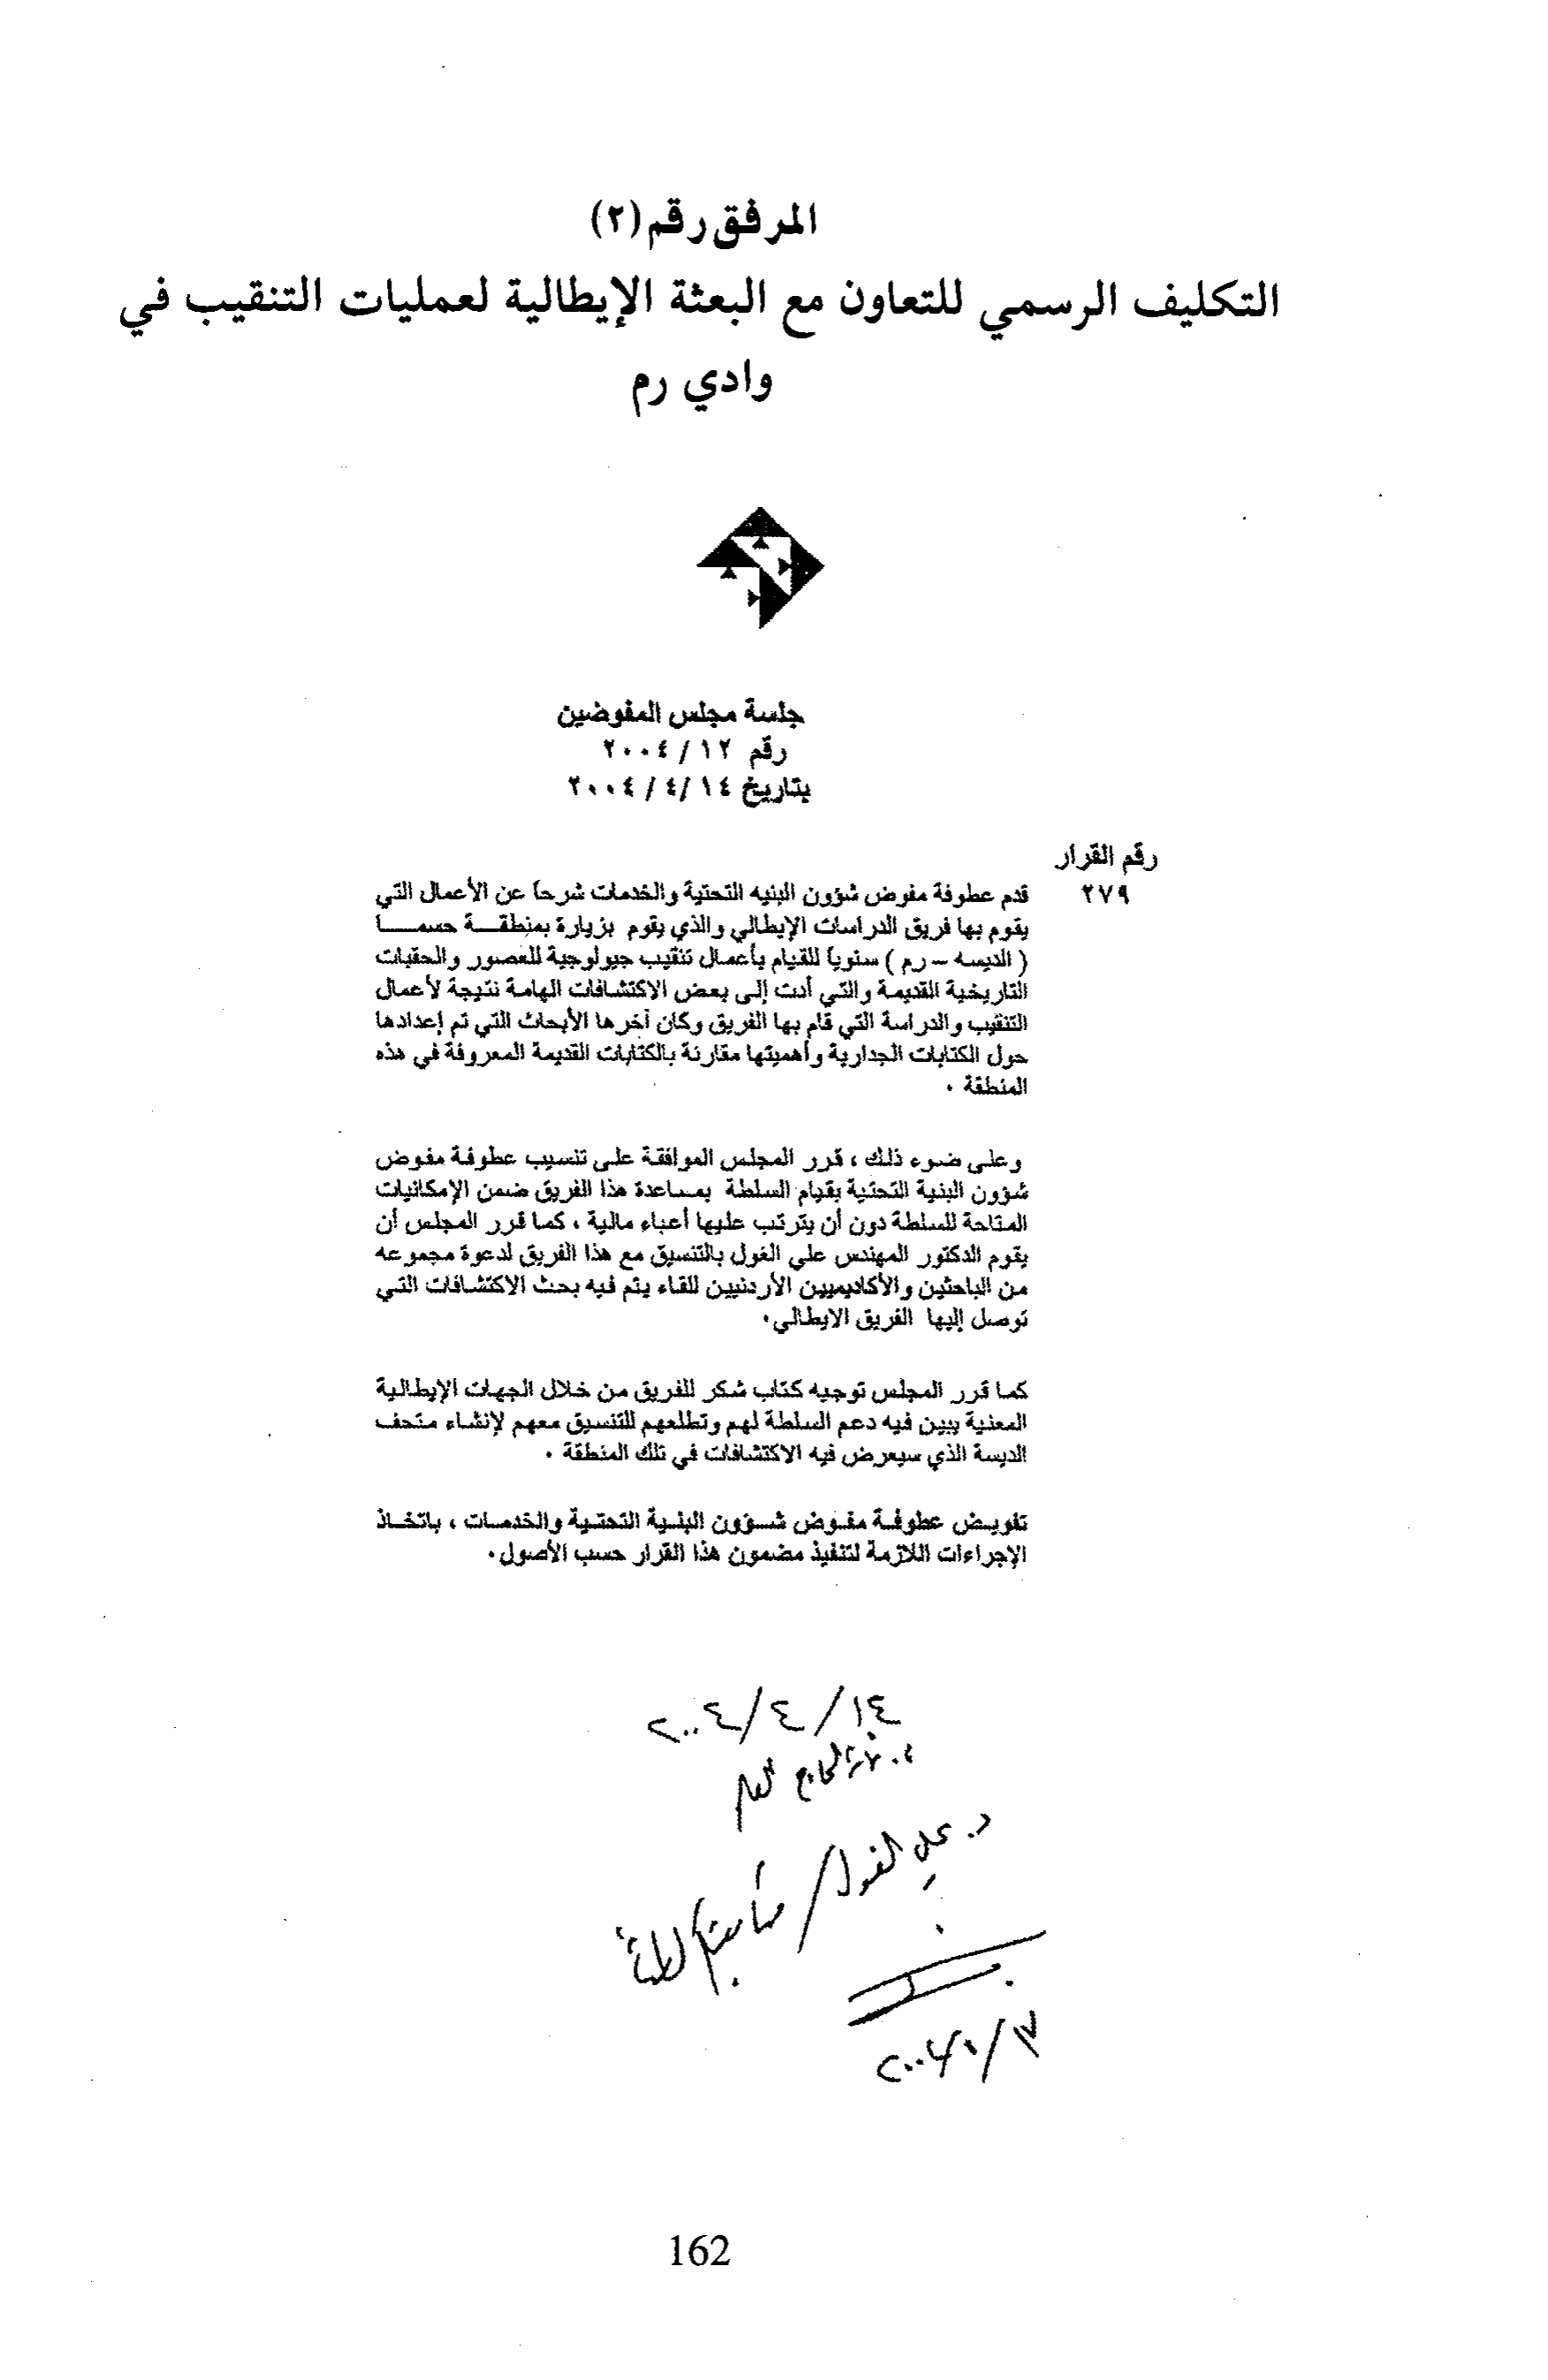 المرفق رقم (٢)
التكليف الرسمي للتعاون مع البعثة الإيطالية لعمليات التنقيب في
وادي رم
جلسة مجلس المفوضين
رقم ١٢ / ٢٠٠٤
بتاريخ ١٤ /٤ / ٢٠٠٤
رقم القرار
٢٧٩
قدم عطوفة مفوض شؤون البنيه التحتية والخدمات شرحاً عن الأعمال التي
يقوم بها فريق الدراسات الإيطالي والذي يقوم بزيارة بمنطقــة حسمـــا
( الديسه – رم ) سنوياً للقيام بأعمال تنقيب جيولوجية للعصور والحقبات
التاريخية القديمة والتي أدت إلى بعض الاكتشافات الهامة نتيجة لأعمال
التنقيب والدراسة التي قام بها الفريق وكان آخرها الأبحاث التي تم إعدادها
حول الكتابات الجدارية وأهميتها مقارنة بالكتابات القديمة المعروفة في هذه
المنطقة .
وعلى ضوء ذلك ، قرر المجلس الموافقة على تنسيب عطوفة مفوض
شؤون البنية التحتية بقيام السلطة بمساعدة هذا الفريق ضمن الإمكانيات
المتاحة للسلطة دون أن يترتب عليها أعباء مالية ، كما قرر المجلس أن
يقوم الدكتور المهندس علي الغول بالتنسيق مع هذا الفريق لدعوة مجموعه
من الباحثين والأكاديميين الأردنيين للقاء يتم فيه بحث الاكتشافات التي
توصل إليها الفريق الايطالي.
كما قرر المجلس توجيه كتاب شكر للفريق من خلال الجهات الإيطالية
المعنية يبين فيه دعم السلطة لهم وتطلعهم للتنسيق معهم لإنشاء متحف
الديسة الذي سيعرض فيه الاكتشافات في تلك المنطقة .
تفويض عطوفة مفوض شؤون البنية التحتية والخدمات ، باتخاذ
الإجراءات اللازمة لتنفيذ مضمون هذا القرار حسب الأصول.
١٤ / ٤ / ٢٠٠٤
د. علي الغول /
162